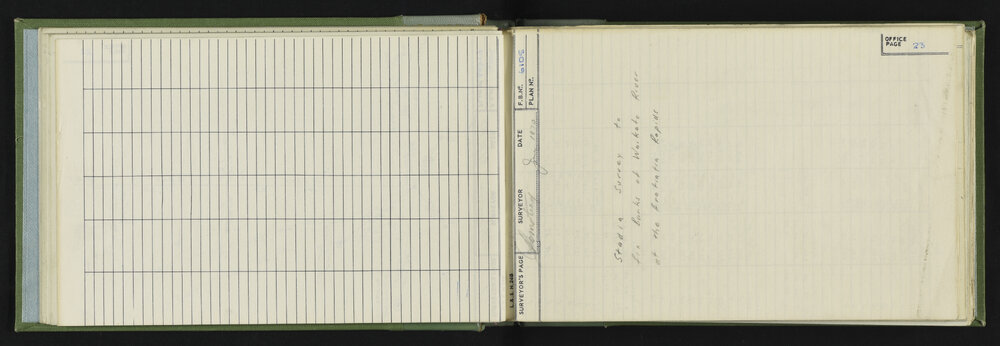 OFFICE
PAGE 23
L. & S. H.368
SURVEYOR'S PAGE
SURVEYOR
DATE June 1970
F.B. Nº. 6108
PLAN Nº.
Stadia Survey to
Fix Banks of Waikato River
at the Aratiatia Rapids